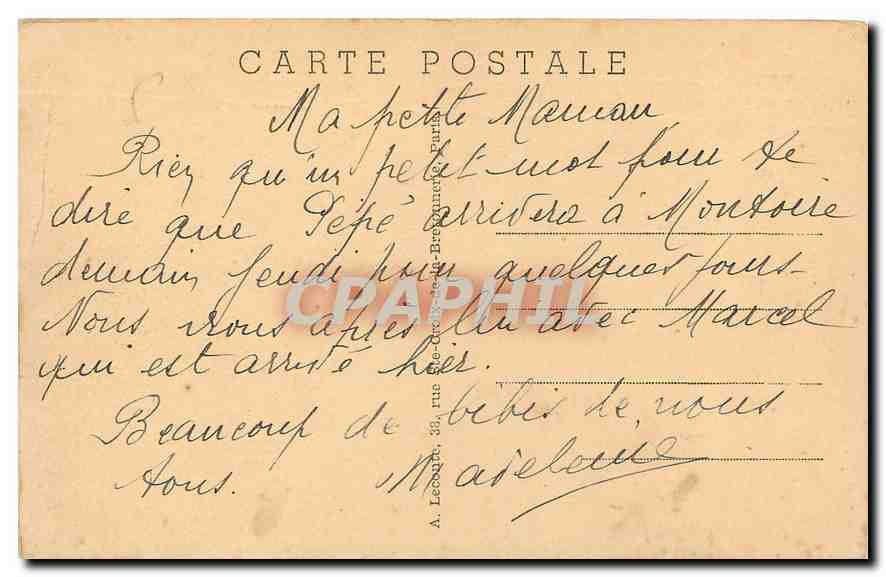 CARTE POSTALE
Ma petite Maman
Rien qu'un petit mot pour te
dire que Pépé arrivera à Montoire
demain Jeudi pour quelques jours.
Nous irons après lui avec Marcel
qui est arrivé hier.
Beaucoup de bibis de nous
tous. Madeleine
A. Leconte, 38, rue Ste-Croix-de-la-Bretonnerie, Paris
CPAPHIL